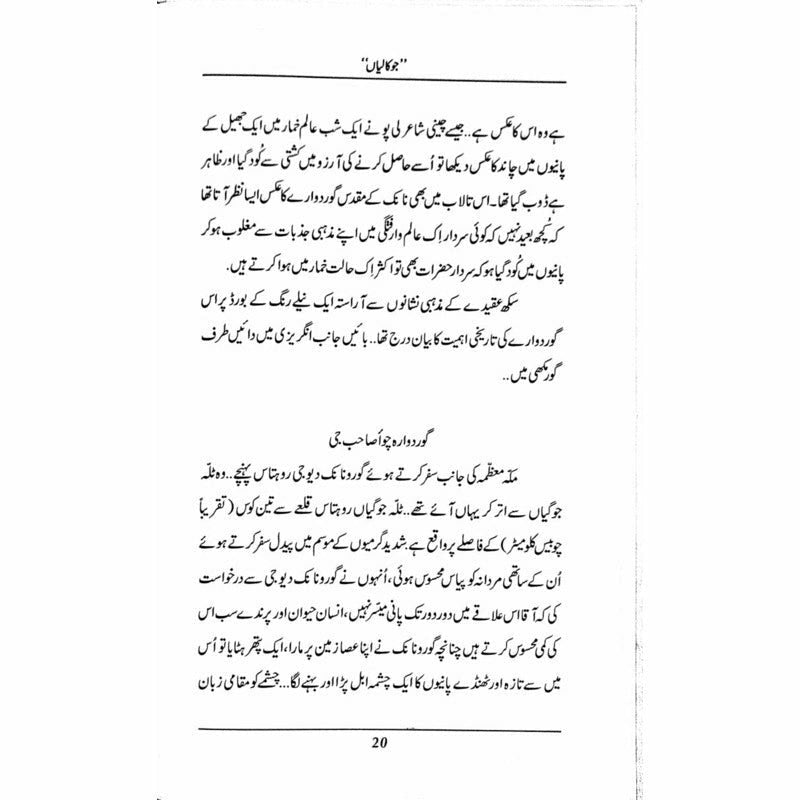 ’’جوکالیاں‘‘
ہے وہ اس کا عکس ہے.. جیسے چینی شاعر لی پو نے ایک شب عالم خمار میں ایک جھیل کے
پانیوں میں چاند کا عکس دیکھا تو اُسے حاصل کرنے کی آرزو میں کشتی سے کُود گیا اور ظاہر
ہے ڈوب گیا تھا۔ اس تالاب میں بھی نانک کے مقدس گوردوارے کا عکس ایسا نظر آتا تھا
کہ کُچھ بعید نہیں کہ کوئی سردار اِک عالم وارفتگی میں اپنے مذہبی جذبات سے مغلوب ہو کر
پانیوں میں کُود گیا ہو کہ سردار حضرات بھی تو اکثر اِک حالت خمار میں ہوا کرتے ہیں.
سکھ عقیدے کے مذہبی نشانوں سے آراستہ ایک نیلے رنگ کے بورڈ پر اس
گوردوارے کی تاریخی اہمیت کا بیان درج تھا.. بائیں جانب انگریزی میں دائیں طرف
گورمکھی میں..
گوردوارہ چوأ صاحب جی
مکّہ معظّمہ کی جانب سفر کرتے ہوئے گورو نانک دیو جی روہتاس پہنچے.. وہ ٹلّہ
جوگیاں سے اتر کر یہاں آئے تھے.. ٹلّہ جوگیاں روہتاس قلعے سے تین کوس (تقریباً
چوبیس کلومیٹر) کے فاصلے پر واقع ہے شدید گرمیوں کے موسم میں پیدل سفر کرتے ہوئے
اُن کے ساتھی مردانہ کو پیاس محسوس ہوئی، اُنہوں نے گورو نانک دیو جی سے درخواست
کی کہ آقا اس علاقے میں دور دور تک پانی میسّر نہیں، انسان حیوان اور پرندے سب اس
کی کمی محسوس کرتے ہیں چنانچہ گورو نانک نے اپنا عصا زمین پر مارا، ایک پتھر ہٹایا تو اُس
میں سے تازہ اور ٹھنڈے پانیوں کا ایک چشمہ ابل پڑا اور بہنے لگا... چشمے کو مقامی زبان
20